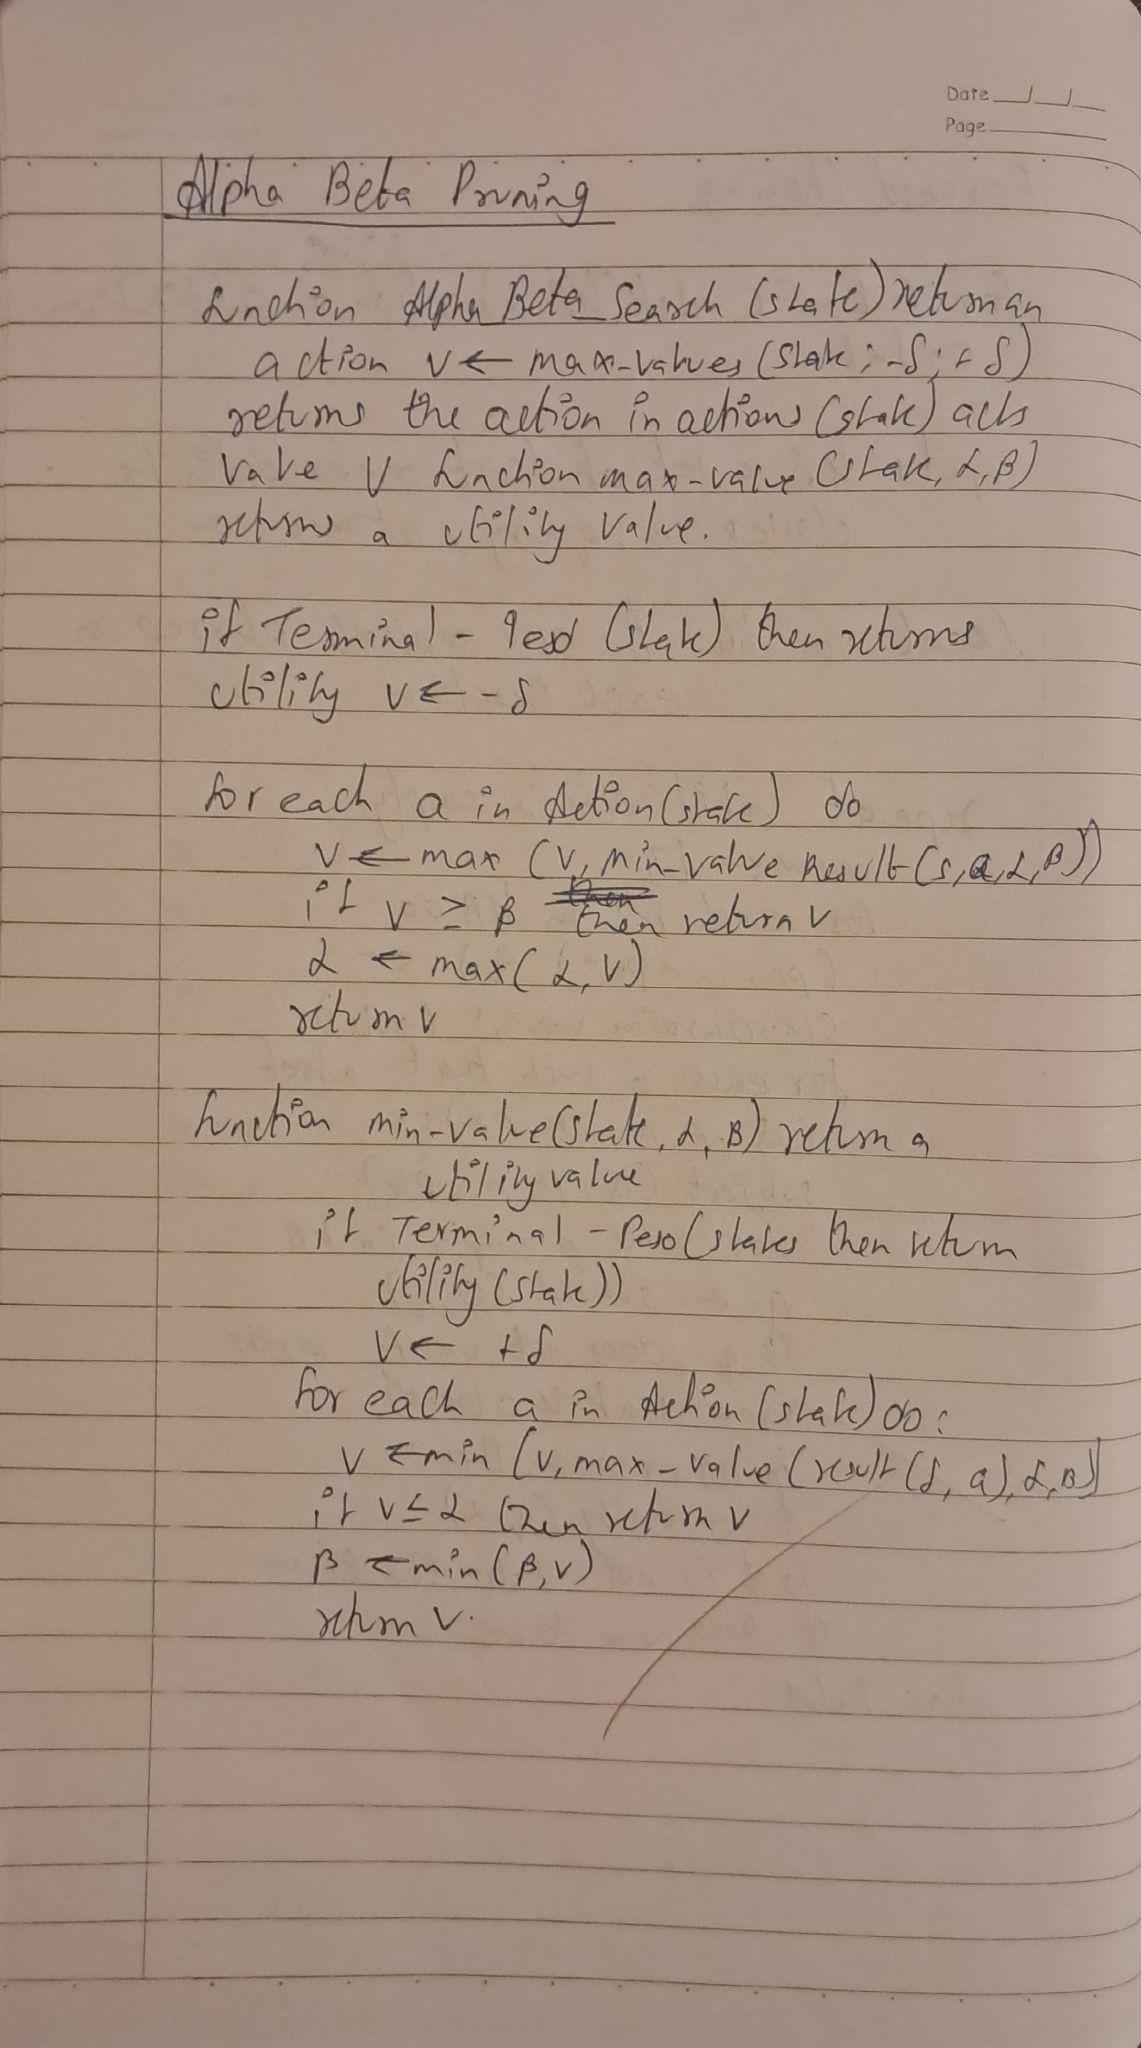 Date
Page
Alpha Beta Pruning
function Alpha Beta_Search (state) return an
action V ← max-values (State ; -δ ; + δ)
returns the action in actions (state) acts
value V function max-value (state, α, β)
returns a utility value.
if Terminal - (state) then returns
utility V ← - δ
for each a in Action (state) do
V ← max (V, min-value Result (s, a, α, β))
if V ≥ β then return V
α ← max (α, V)
return V
function min-value (state, α, β) return a
utility value
if Terminal - (states then return
utility (state))
V ← + δ
for each a in Action (state) do :
V ← min (V, max - value (result (δ, a), α, β)
if V ≤ α then return V
β ← min (β, V)
return V.